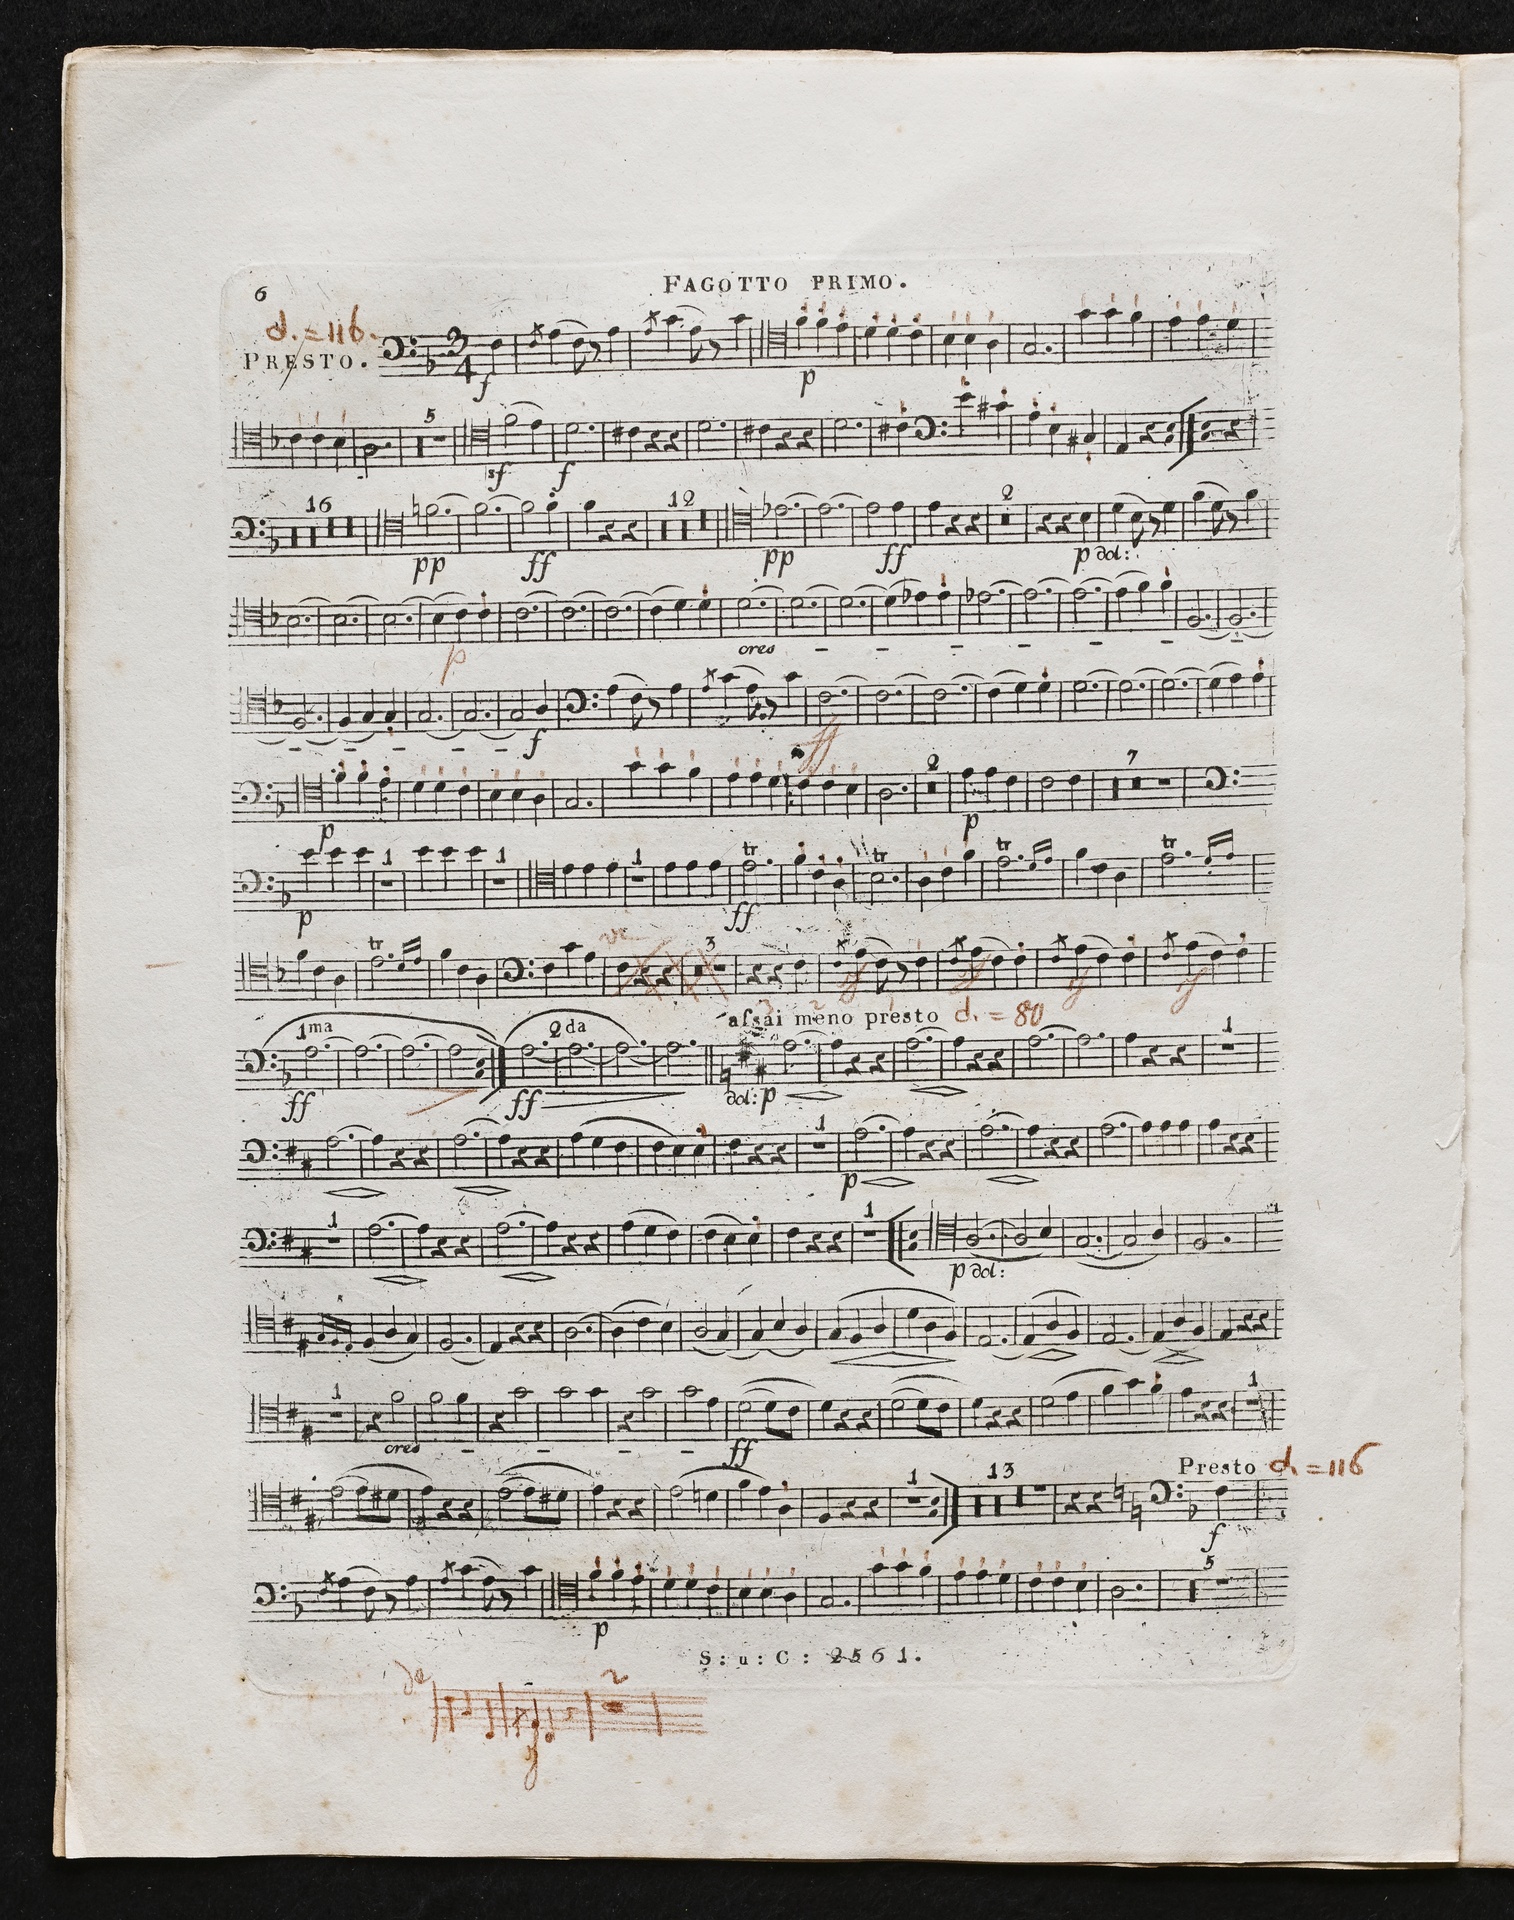 FAGOTTO PRIMO.
6
d. = 116.
PRESTO.
3 4
f
p
5
sf f
16 12 2
pp ff pp ff p dol:
p
cres
f
ff
2 7
p p
1 1 1
tr tr tr tr
p ff
tr 3
1ma 2da assai meno presto d. = 80
1
ff ff dol: p
1
p
1 1
p dol:
1 1
cres ff
1 13 Presto d. = 116
f
5
p
S: u: C: 2561.
de 2